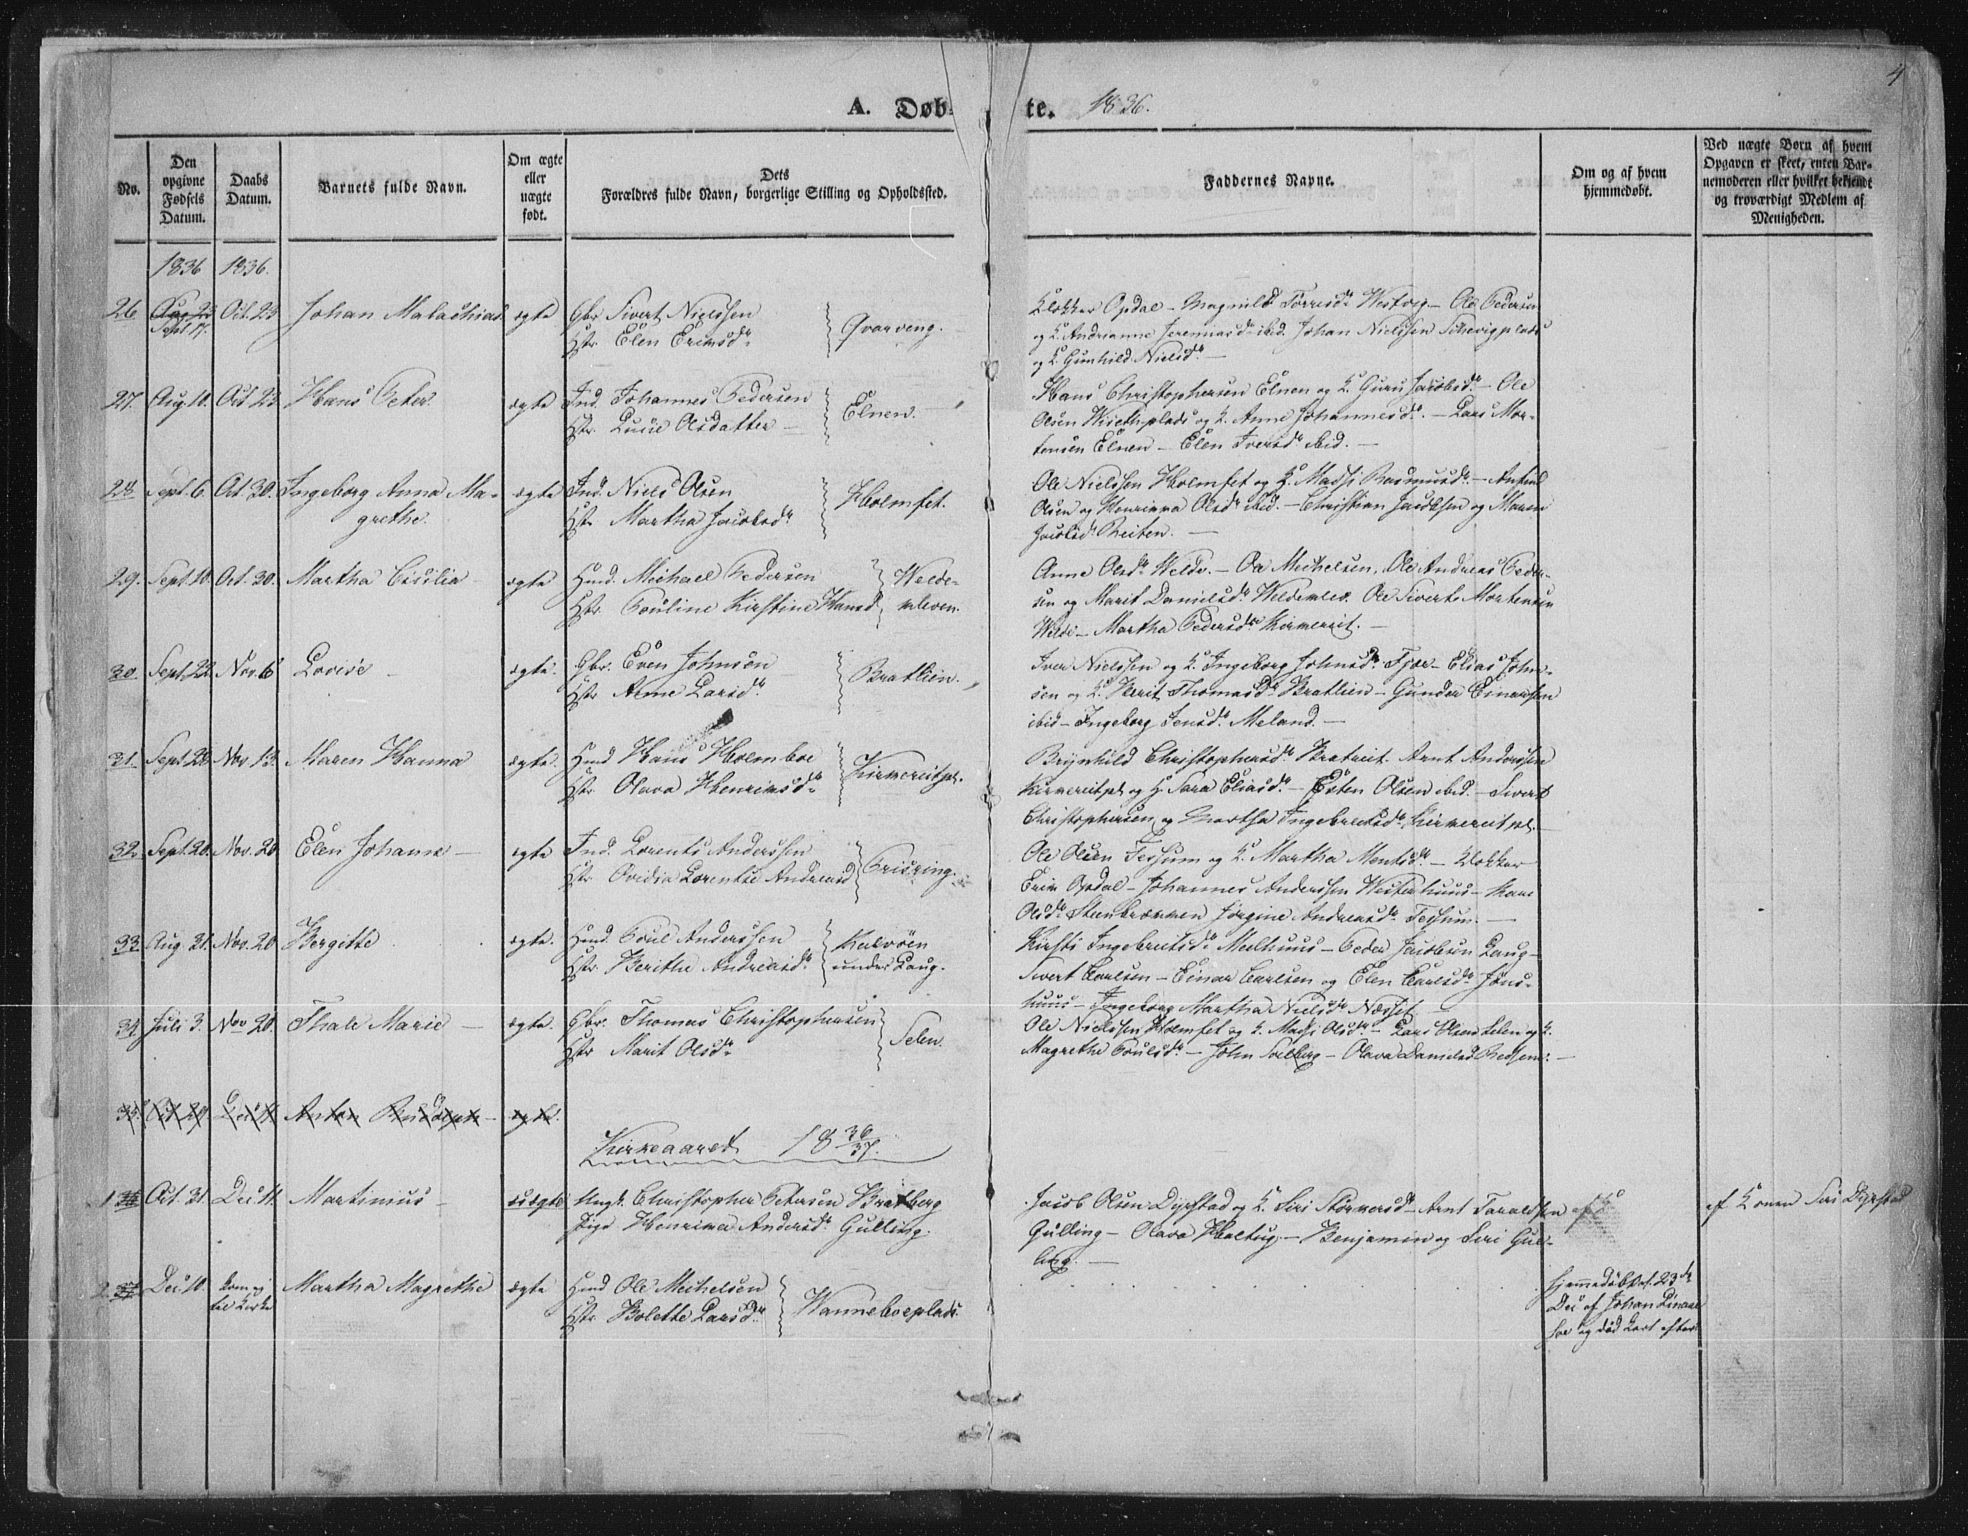 4
A. Døbte. 1836.
No.
Den opgivne Fødsels Datum.
Daabs Datum.
Barnets fulde Navn.
Om ægte eller uægte født.
Dets Forældres fulde Navn, borgerlige Stilling og Opholdssted.
Faddernes Navne.
Om og af hvem hjemmedøbt.
Ved uægte Børn af hvem Opgaven er skeet, enten Barnemoderen eller hvilket bekjendt og troværdigt Medlem af Menigheden.
1836 1836.
26 Aug 23 Sept 17. Oct. 23 Johan Malachias ægte Gbr. Sivert Nielssen
Hstr. Elen Eriksd. Qvarveng.
Klokker Opdal – Magnild Torresd. Westvig – Ole Pedersen
og K. Andrianne Jeremiasd. ibid. Johan Nielssen
og K. Gunhild Nielsd. –
27. Aug 10. Oct 23 Hans Peter. ægte Ind. Johannes Pedersen
Hstr. Lucie Olsdatter – Elnen. –
Hans Christophersen Elnen og K. Guru Jacobsd. – Ole
Olsen Wisethplads og K. Anne Johannesd. – Lars Mor-
tensen Elnen – Elen Iversd. ibid. –
28 Sept. 6. Oct. 30. Ingeborg Anna Ma-
grethe. ægte Ind. Niels Olsen
Hstr. Martha Jacobsd. Holmset.
Ole Nielssen Holmset og K. Madsi Rasmusd. –
Olsen og Henrikka Olsd. ibid. – Christian Jacobsen og Maren
Jacobsd. Reiten. –
29. Sept. 10. Oct. 30. Martha Cicilia ægte Huusd. Michael Pedersen
Hstr. Pouline Kirstine Hansd. Welde-
kleven.
Anne Olsd. Welde. – Ole Michelsen, Ole Andreas Peder-
sen og Marit Danielsd. Weldeklev. Ole Sivert Mortensen
Welde – Martha Pedersd. Kirkereit. –
30. Sept. 22. Nov. 6 Lovise – ægte. Gbr. Even Johnsen
Hstr. Anne Larsd. Bratlien.
Iver Nielssen og K. Ingeborg Johnsd. Fjær – Elias John-
sen og K. Berit Thomasd. Bratlien – Gunder Einersen
ibid – Ingeborg Jensd. Meland. –
31. Sept 28. Nov. 13. Maren Hanna ægte. Huusd Hans Holmboe
Hstr. Olava Henriksd. Kirkereitpl.
Brynhild Christophersd. Bratreit. Arnt Anderssen
Kirkereitpl og H. Sara Eliasd. – Esten Olsen ibid. – Sivert
Christophersen og Martha Ingebretsd. Kirkereitpl. –
32. Sept. 20. Nov. 20 Elen Johanna – ægte Ind. Lorents Anderssen
Hstr. Ovidia Lorentse Andreasd
Ole Olsen Tessum og K. Martha Mentsd. – Klokker
Erik Opdal – Johannes Anderssen Westerhuus –
Olsd. Steenbrækken Jørgine Andreasd. Tessum. –
33. Aug 21. Nov. 20 Bergitte ægte. Huusd Poul Anderssen
Hstr. Berithe Andreasd. Kalvøen
under Laug.
Kirsti Ingebretsd. Meelhuus – Peder Jacobsen Laug –
Sivert Carlsen – Einar Carlsen og Elen Carlsd. Jøns-
huus – Ingeborg Martha Nielsd. Næsset
34. Juli 3. Nov 20. Thale Marie – ægte. Gbr. Thomas Christophersen
Hstr Marit Olsd. Selen.
Ole Nielssen Holmset og K. Madsi Olsd. – Lars Olsen Selen og K.
Magrethe Poulsd. – John Solberg – Olava Danielsd. –
35. Oct 29. Dec 4. Anton – ægte.
Kirkeaaret 1836/37.
1 36 Oct. 31. Dec 11. Martinus – uægte Ungk. Christopher Petersen Bratberg
Pige Henrikka Andersd. Gulling.
Jacob Olsen Dyrstad og K. Siri Størkersd. – Arnt Taraldsen
Gulling – Olava Haltug. – Benjamin og Siri Gul-
ling. –
af Konen Siri Dyrstad
2 37 Dec 10. kom ej
til Kirke Martha Magrethe ægte Huusd Ole Michelsen
Hstr. Bolette Larsd. Wanneboeplads.
Hjemmedøbt d. 23de
Dec af Johan
og død kort efter.